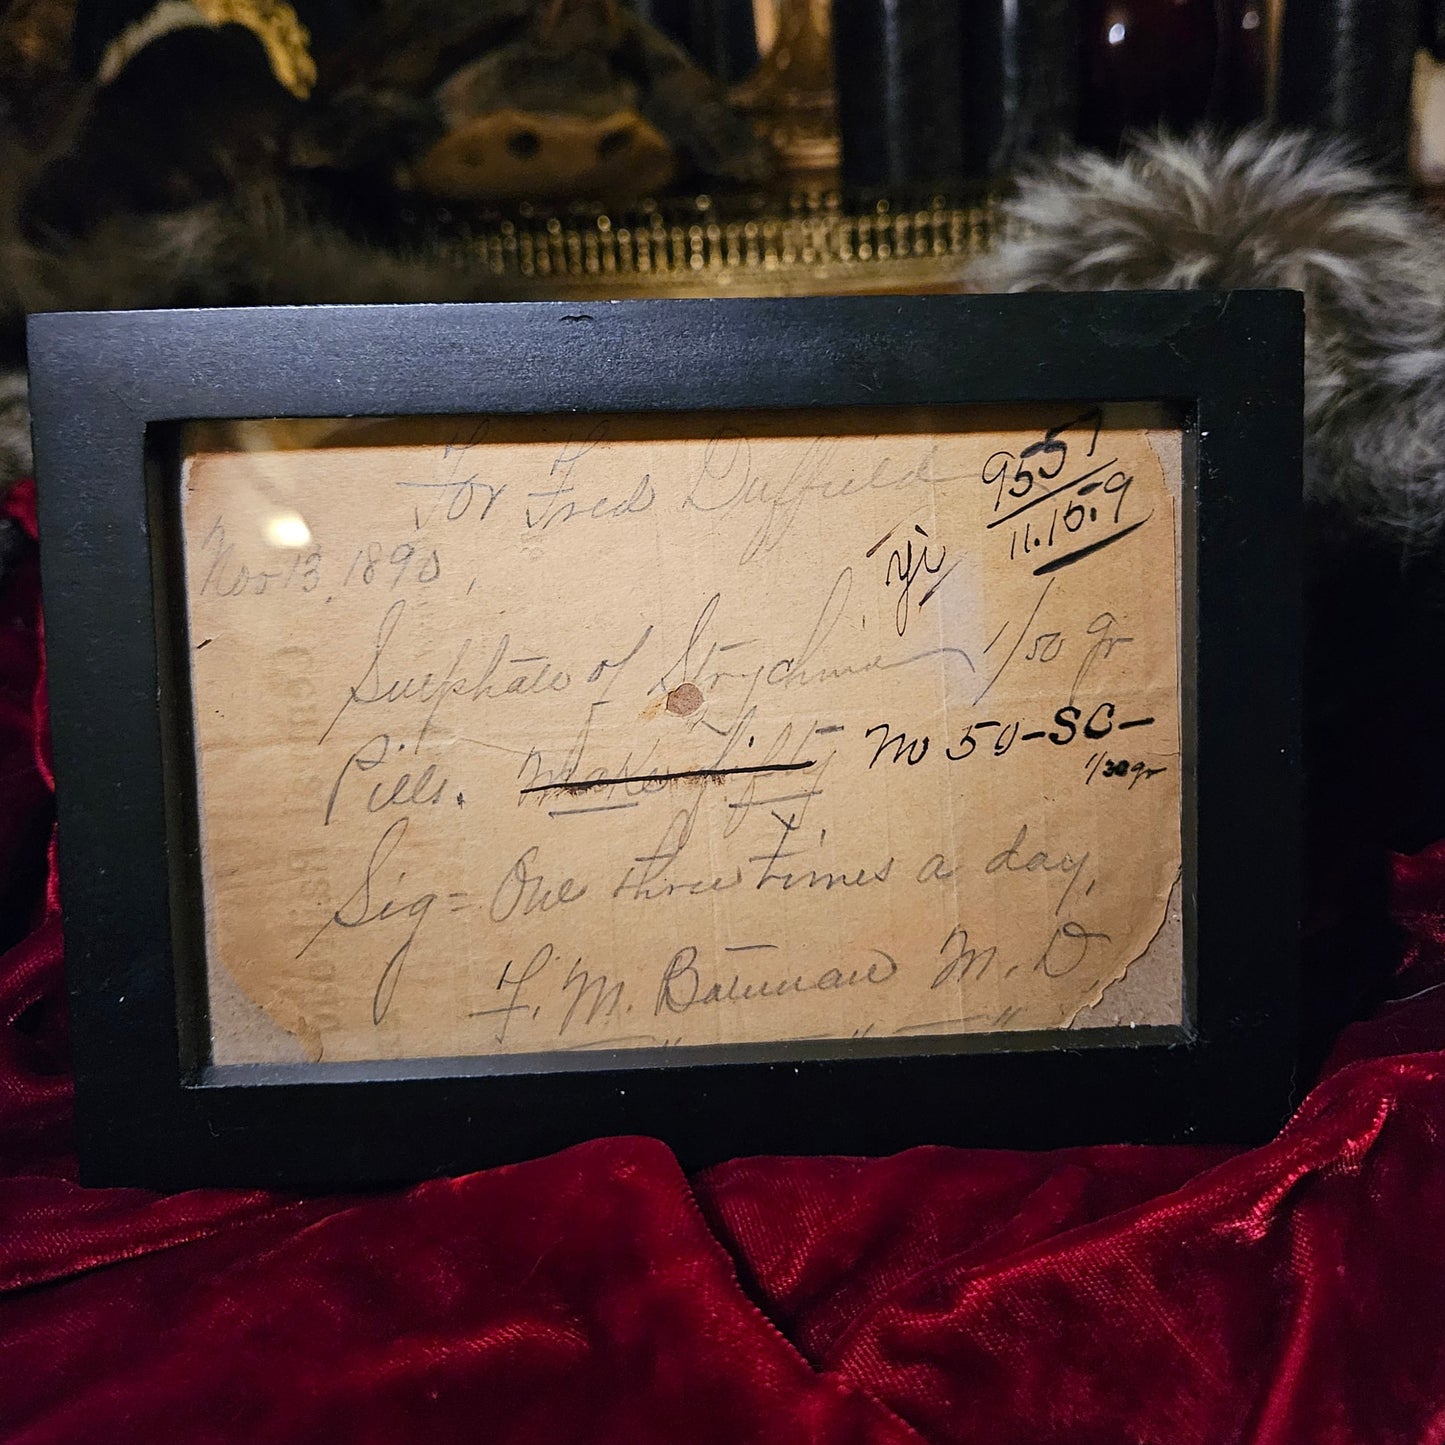 For Fred Duffield
9557
11.15.9
Nov 13, 1890,
Sulphate of Strychnia 1/50 gr
Pills. Make fifty No 50-SC-
1/30 gr
Sig= One three times a day,
F. M. Bateman M.D